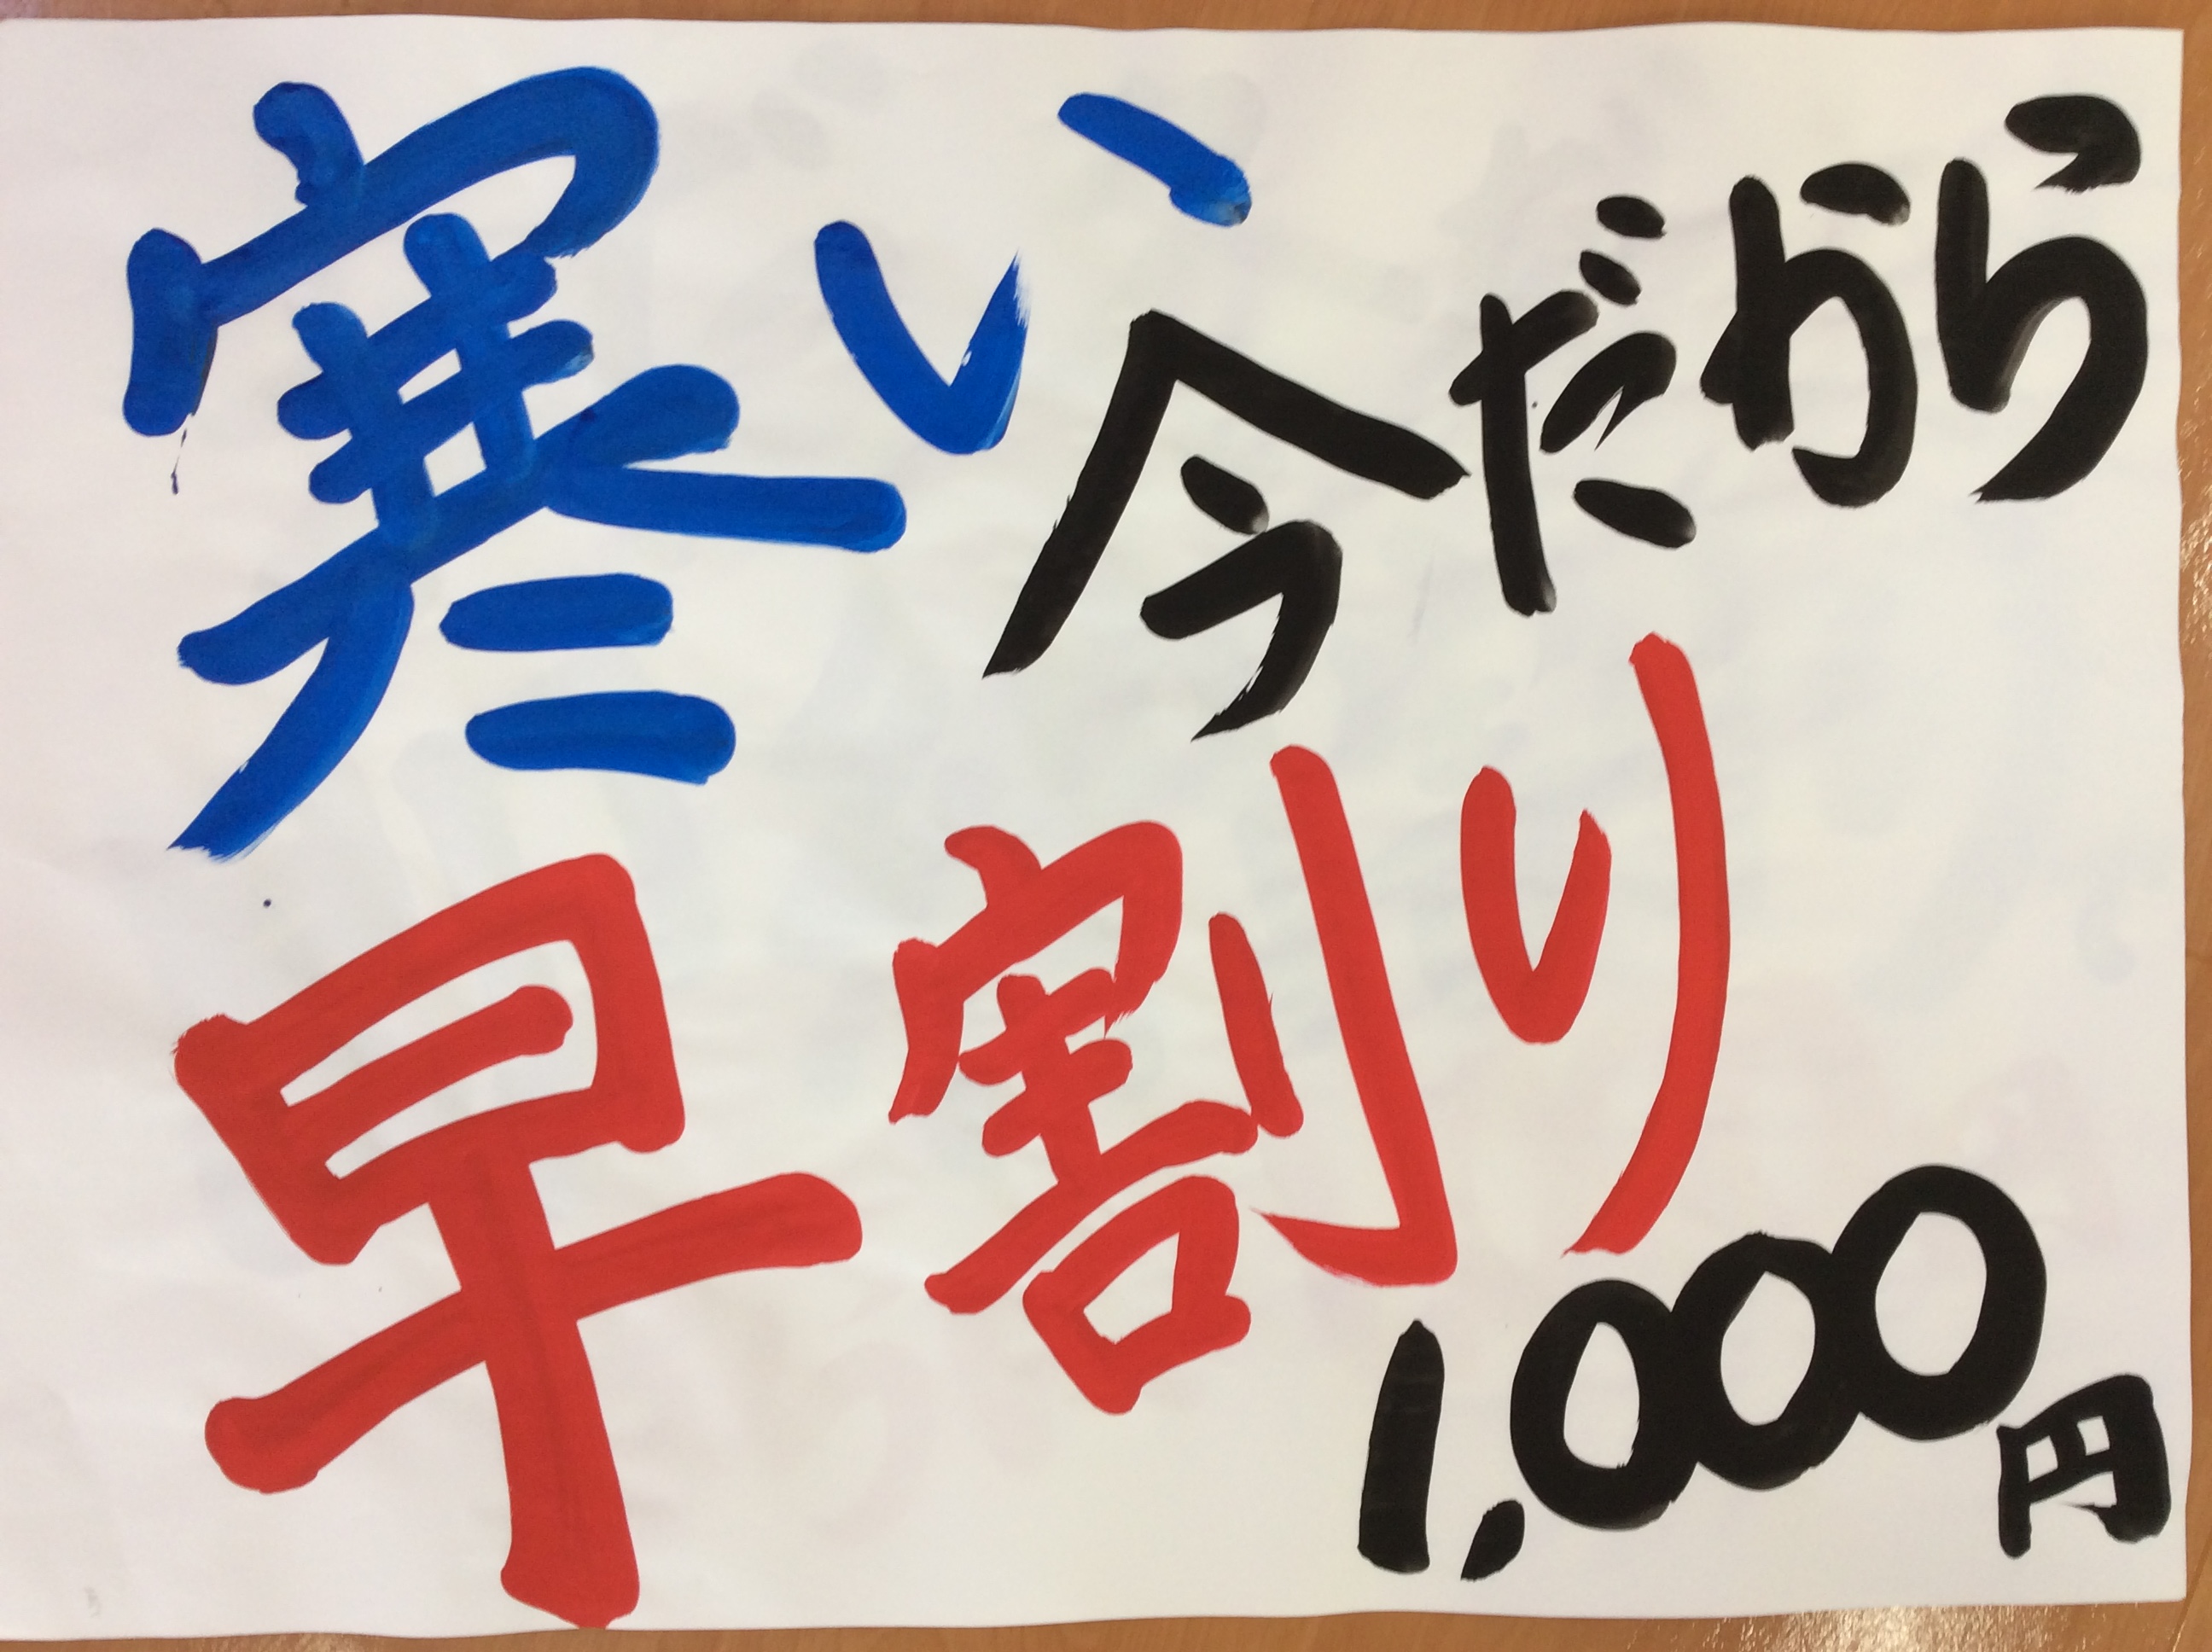 寒い今だから
早割り
1,000円